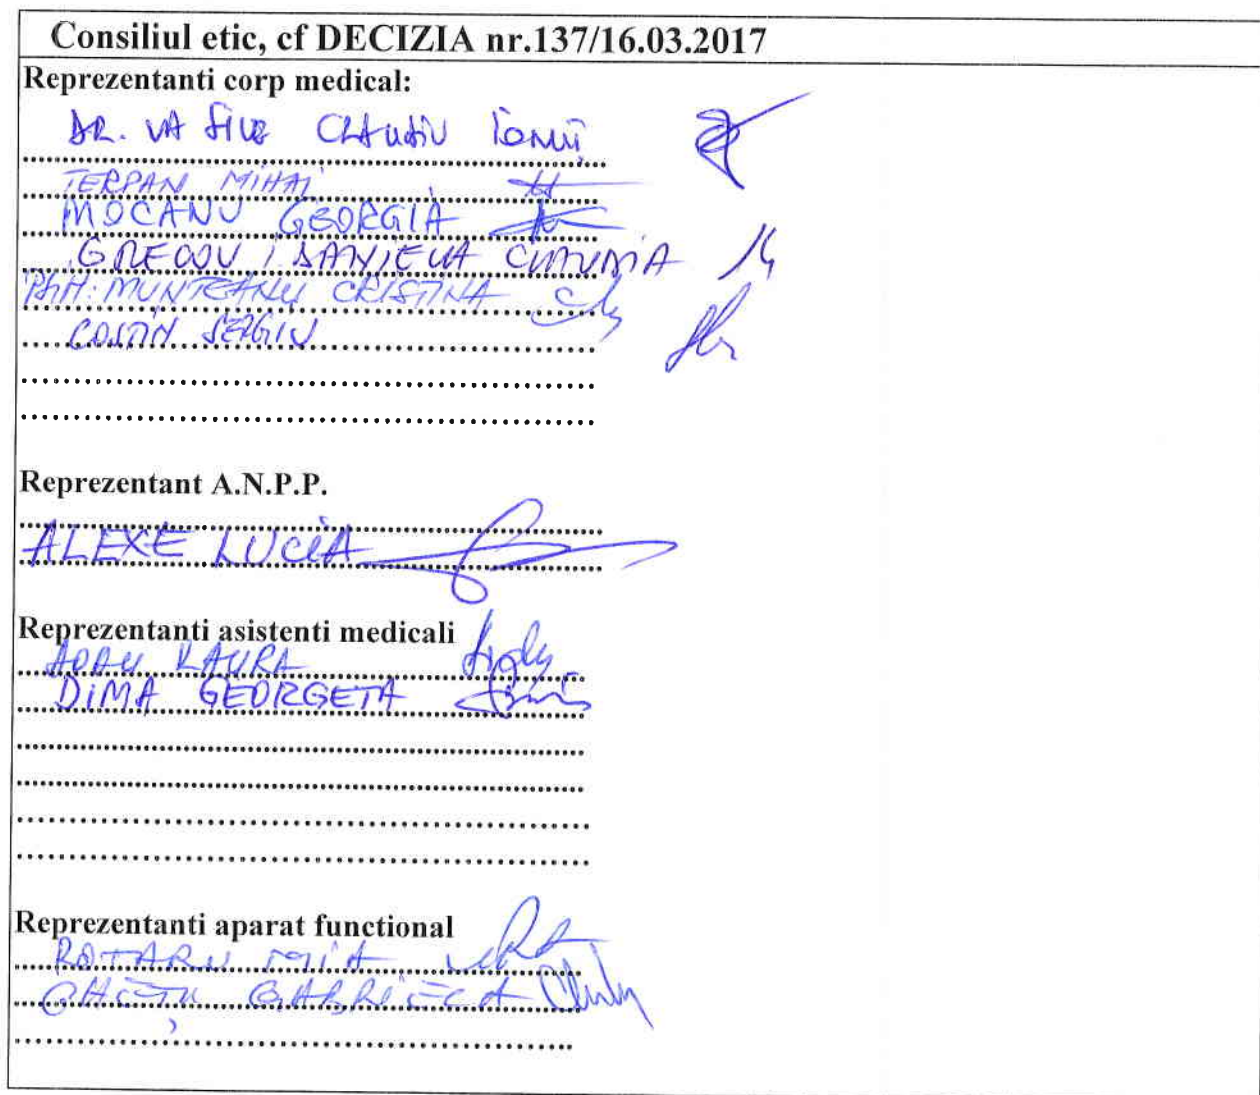 Consiliul etic, cf DECIZIA nr.137/16.03.2017
Reprezentanti corp medical:
DR. VASILE CLAUDIU IONUȚ
TERPAN MIHAI
MOCANU GEORGIA
GRECOV DANIELA CLAUDIA
MUNTEANU CRISTINA
COSTIN SERGIU
Reprezentant A.N.P.P.
ALEXE LUCIA
Reprezentanti asistenti medicali
LAURA
DIMA GEORGETA
Reprezentanti aparat functional
ROTARU MIA
GABRIELA